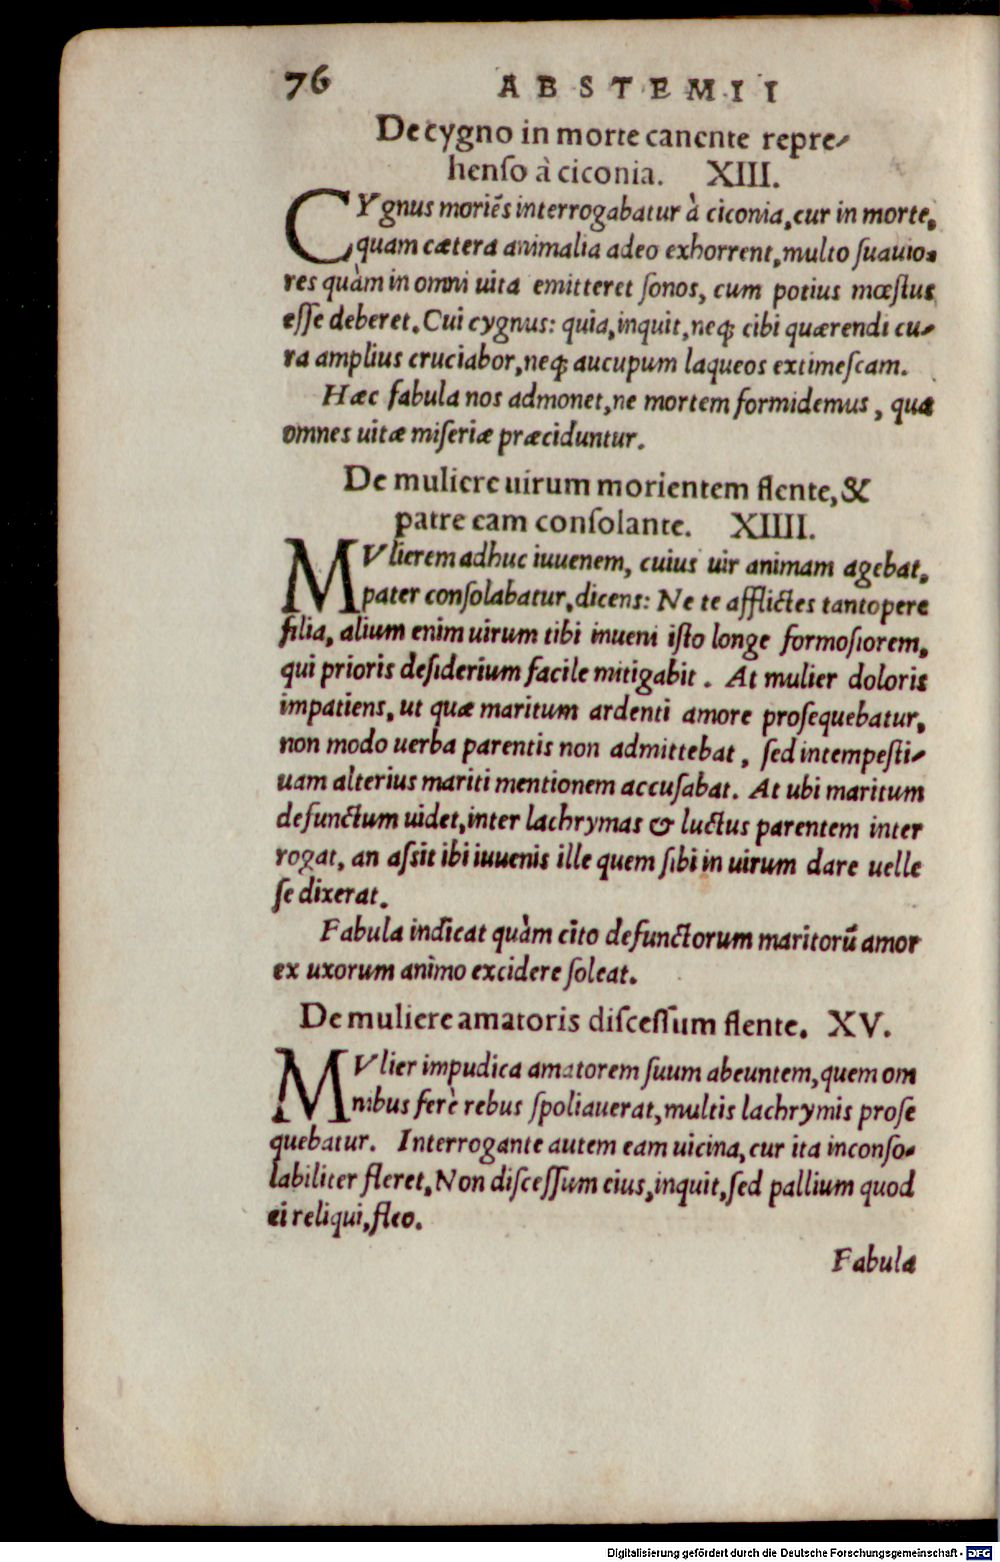 76 ABSTEMII
De cygno in morte canente repre-
henſo à ciconia. XIII.
CYgnus moriẽs interrogabatur à ciconia, cur in morte,
quam cætera animalia adeo exhorrent, multo ſuauio-
res quàm in omni uita emitteret ſonos, cum potius mœſtus
eſſe deberet. Cui cygnus: quia, inquit, neq; cibi quærendi cu-
ra amplius cruciabor, neq; aucupum laqueos extimeſcam.
Hæc fabula nos admonet, ne mortem formidemus, qua
omnes uitæ miſeriæ præciduntur.
De muliere uirum morientem flente, &
patre eam conſolante. XIIII.
MVlierem adhuc iuuenem, cuius uir animam agebat,
pater conſolabatur, dicens: Ne te afflictes tantopere
filia, alium enim uirum tibi inueni iſto longe formoſiorem,
qui prioris deſiderium facile mitigabit. At mulier doloris
impatiens, ut quæ maritum ardenti amore proſequebatur,
non modo uerba parentis non admittebat, ſed intempeſti-
uam alterius mariti mentionem accuſabat. At ubi maritum
defunctum uidet, inter lachrymas & luctus parentem inter
rogat, an aſsit ibi iuuenis ille quem ſibi in uirum dare uelle
ſe dixerat.
Fabula indicat quàm cito defunctorum maritorũ amor
ex uxorum animo excidere ſoleat.
De muliere amatoris diſceſſum flente. XV.
MVlier impudica amatorem ſuum abeuntem, quem om
nibus ferè rebus ſpoliauerat, multis lachrymis proſe
quebatur. Interrogante autem eam uicina, cur ita inconſo-
labiliter fleret, Non diſceſſum eius, inquit, ſed pallium quod
ei reliqui, fleo.
Fabula
Digitalisierung gefördert durch die Deutsche Forschungsgemeinschaft - DFG